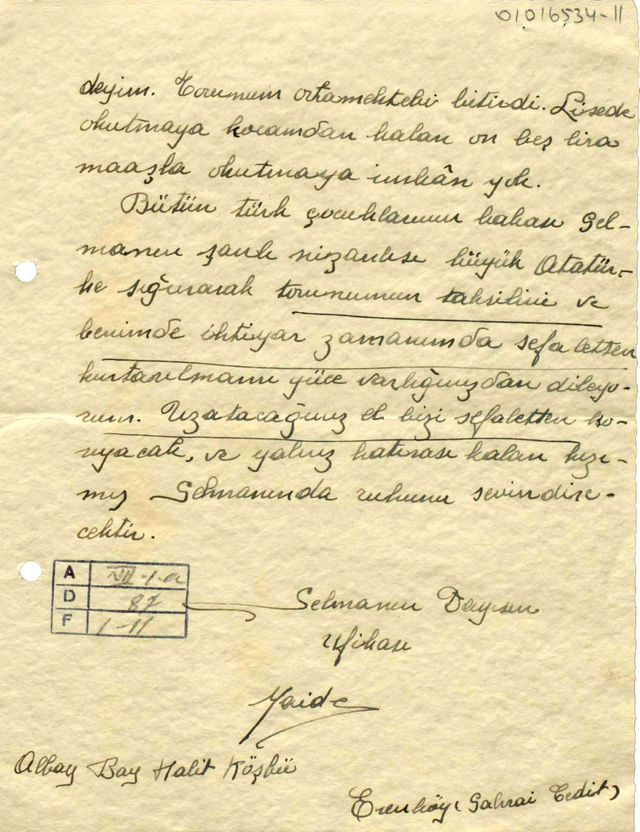 01016534-11
deyim. Torunum ortamektebi bitirdi. Lisede
okutmaya kocamdan kalan on beş lira
maaşla okutmaya imkân yok.
Bütün türk çocuklarının babası Sel-
manın şanlı büyük Atatür-
ke sığınarak torunumun tahsilini ve
benimde ihtiyar zamanımda sefaletten
kurtarılmamı yüce varlığınızdan diliyo-
rum. Uzatacağınız el bizi sefaletten ko-
ruyacak, ve yalnız hatırası kalan kızı-
mız Selmanında ruhunu sevindire-
cektir.
A VIII-1-a
D 87
F 1-11
Selmanın
Albay Bay Halit Köşkü
Erenköy (Sahrai Cedit)